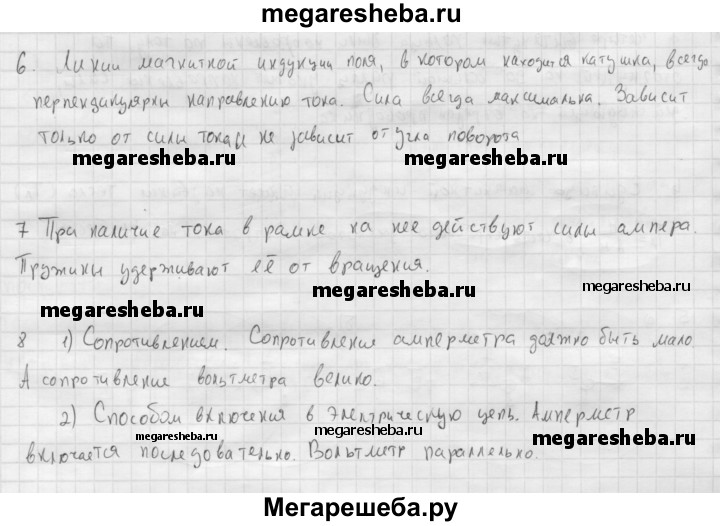 megaresheba.ru
6. Линии магнитной индукции поля, в котором находится катушка, всегда
перпендикулярны направлению тока. Сила всегда максимальна. Зависит
только от силы тока и не зависит от угла поворота
megaresheba.ru megaresheba.ru
7 При наличие тока в рамке на нее действуют силы ампера.
Пружины удерживают её от вращения.
megaresheba.ru megaresheba.ru megaresheba.ru
8 1) Сопротивлением. Сопротивление амперметра должно быть мало
А сопротивление вольтметра велико.
2) Способом включения в электрическую цепь. Амперметр
megaresheba.ru megaresheba.ru megaresheba.ru
включается последовательно. Вольтметр параллельно.
Мегарешеба.ру